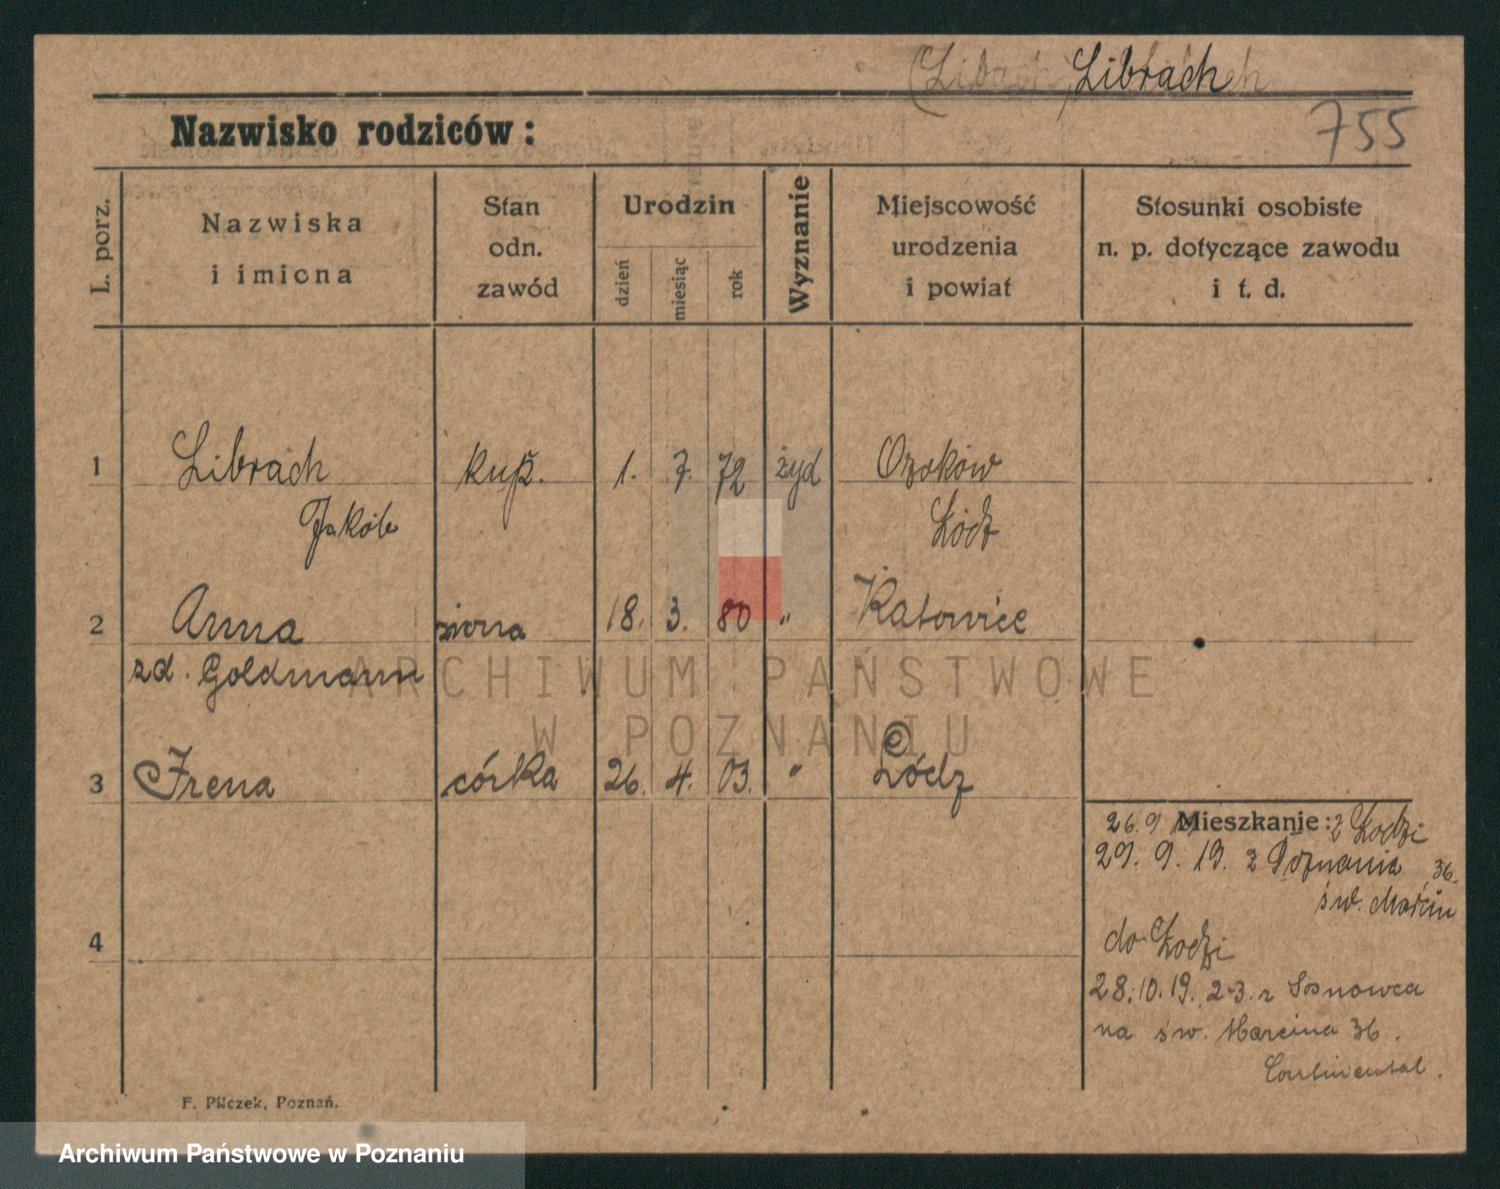 Librach
755
Nazwisko rodziców:
L. porz.
Nazwiska
i imiona
Stan
odn.
zawód
Urodzin
dzień
miesiąc
rok
Wyznanie
Miejscowość
urodzenia
i powiat
Stosunki osobiste
n. p. dotyczące zawodu
i t. d.
1 Librach kup. 1. 7. 72 żyd Ozoków
Jakób Łódź
2 Anna żona 18. 3. 80 " Katowice
zd. Goldmann
ARCHIWUM PAŃSTWOWE
W POZNANIU
©
3 Irena córka 26. 4. 03. " Łódz
Mieszkanie:
26. 9. 19 z Łodzi
29. 9. 19. z Poznania 36.
św. Marcin
4
do Łodzi
28. 10. 19. 2-3. z Sosnowca
na św. Marcina 36.
Continental.
F. Pilczek, Poznań.
Archiwum Państwowe w Poznaniu